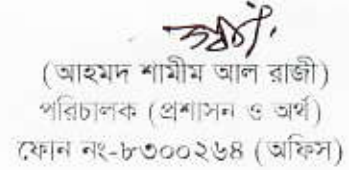 (আহমদ শামীম আল রাজী)
পরিচালক (প্রশাসন ও অর্থ)
ফোন নং-৮৩০০২৬৪ (অফিস)